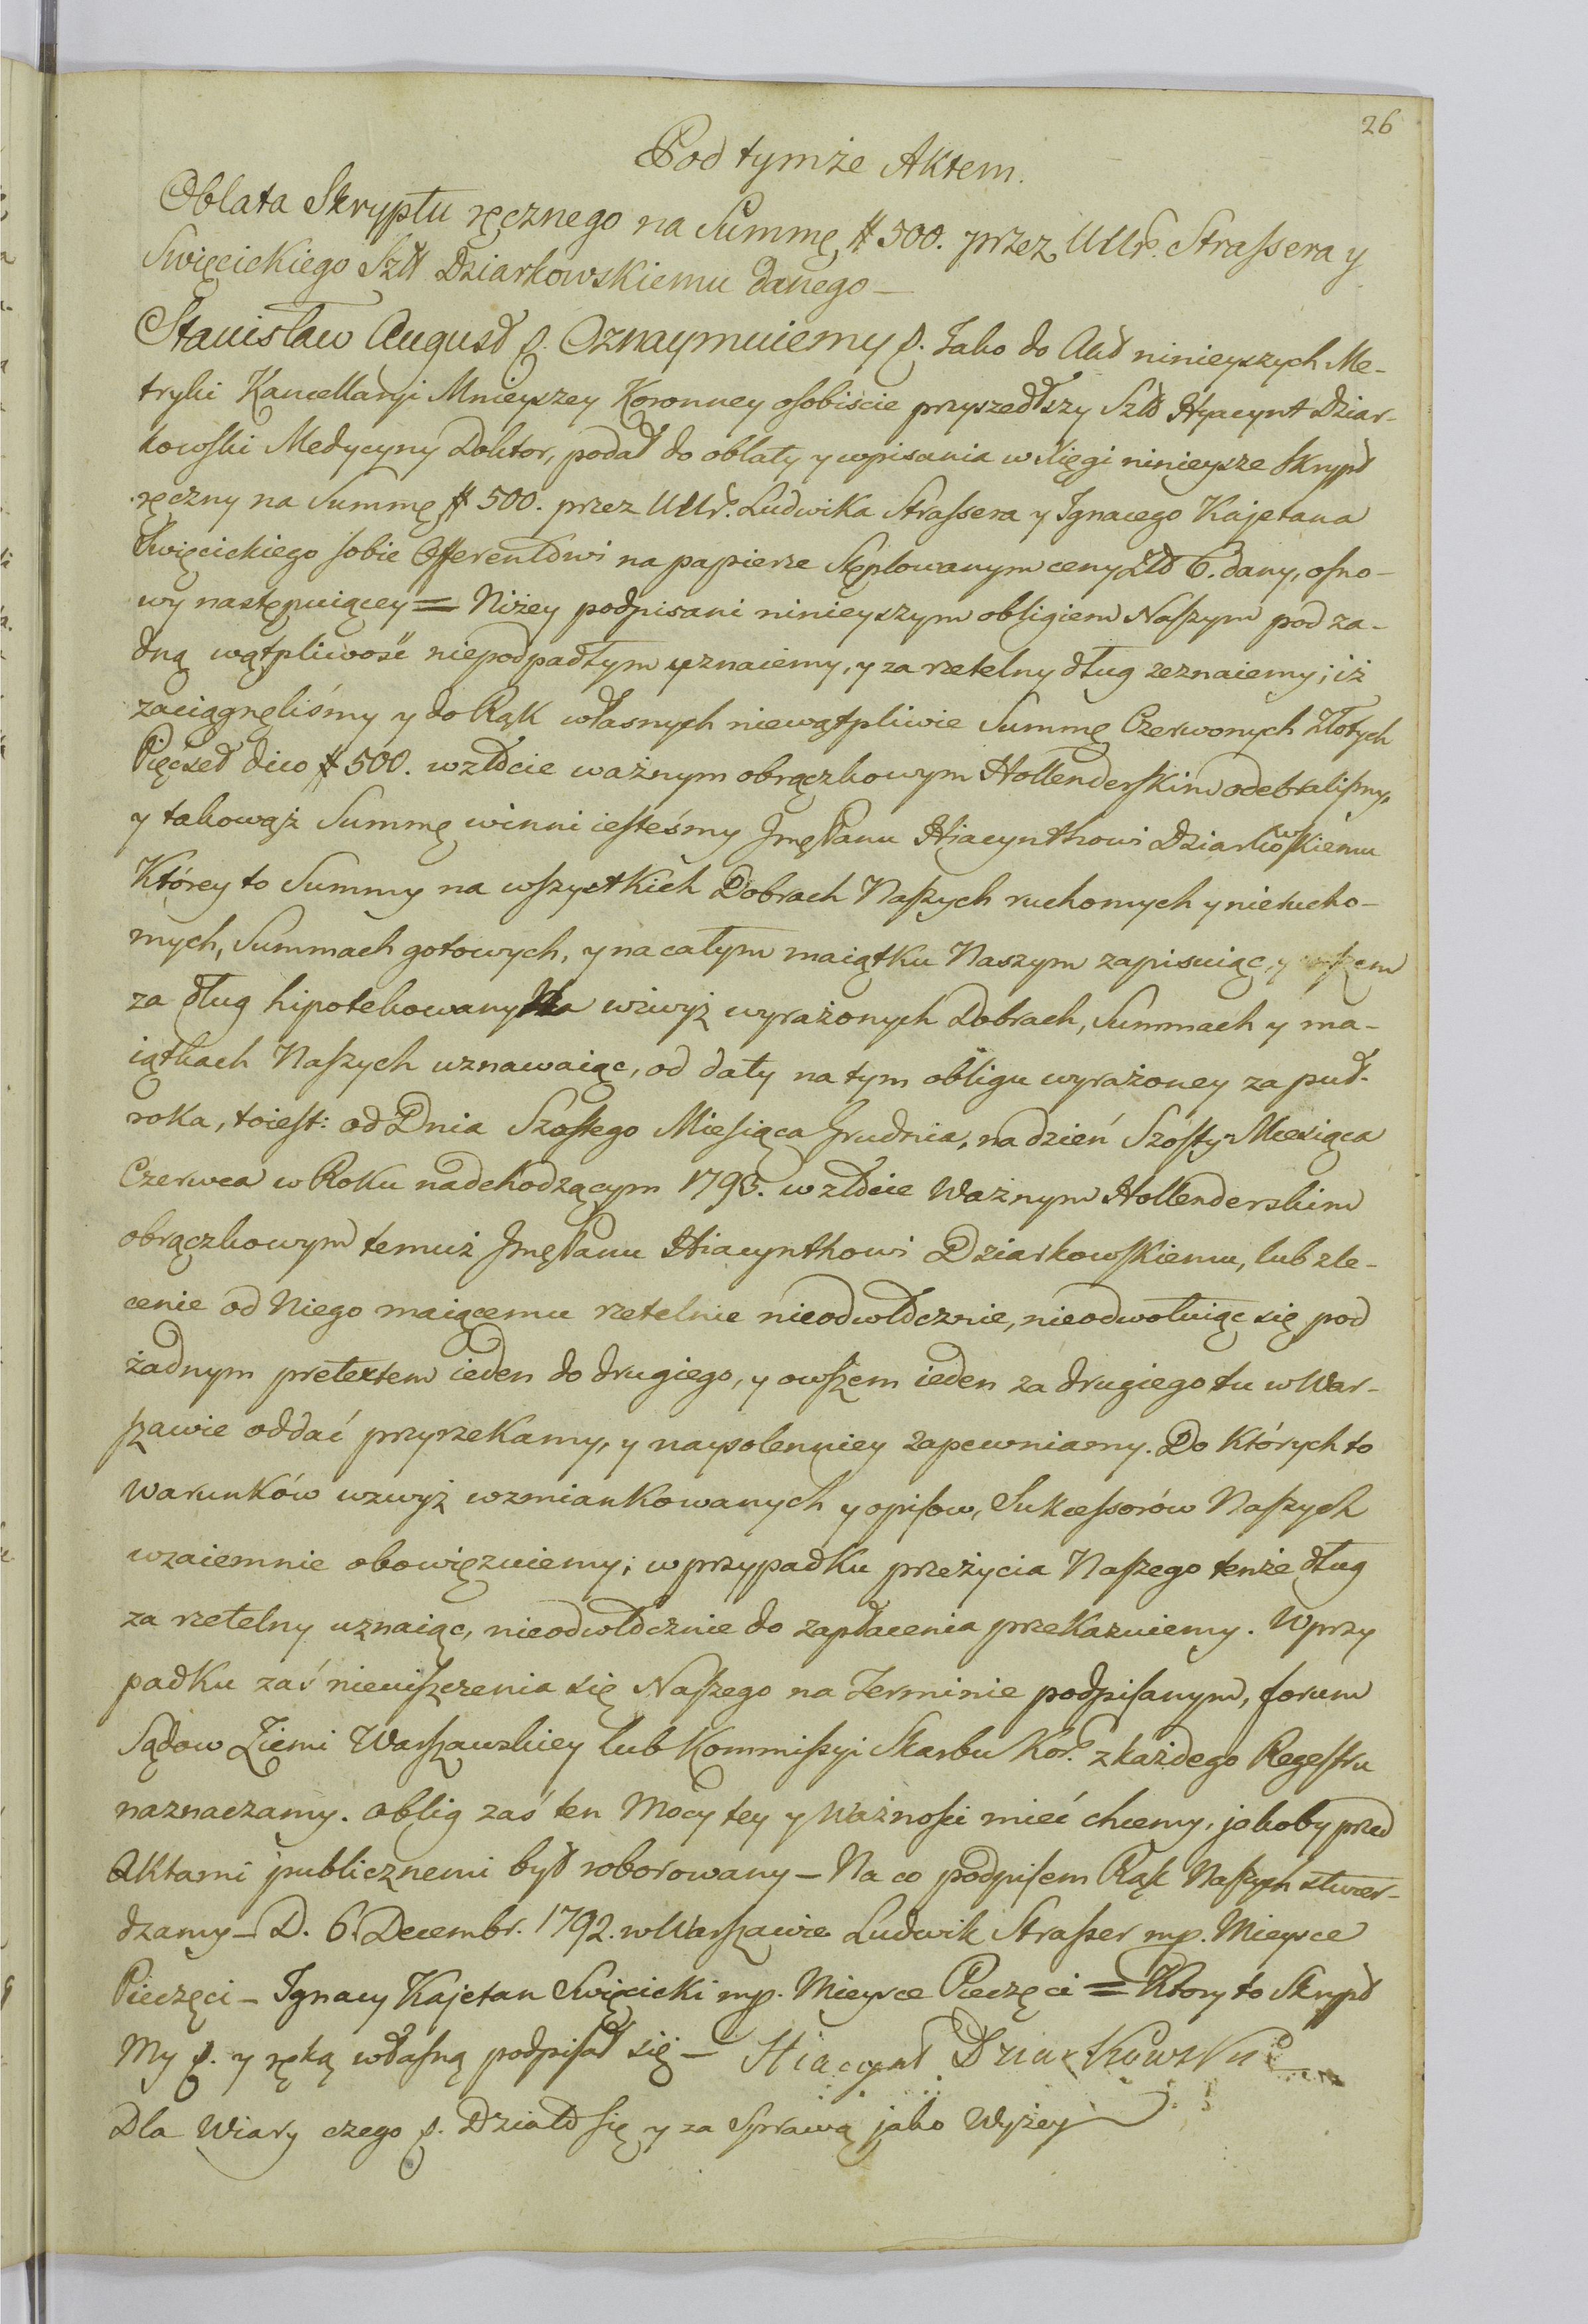 26
Pod tymże Aktem.
Oblata Skryptu ręcznego na Summę # 500. przez UUr. Strassera y
Swięcickiego Szlł Dziarkowskiemu danego —
Stanisław August p. Oznaymuiemy p. Jako do Akt ninieyszych Me-
tryki Kancellaryi Mnieyszey Koronney osobiscie przyszedłszy Szlł Hyacynt Dziar-
kowski Medycyny Doktor, podał do oblaty y wpisania w Xięgi ninieysze skrypt
ręczny na Summę # 500. przez UUr. Ludwika Strassera y Ignacego Kajetana
Swięcickiego sobie Offerentowi na papierze Stęplowanym ceny Złł 6. dany, osno-
wy następuiącey = Niżey podpisani ninieyszym obligiem Naszym pod za-
dną wątpliwość niepodpadłym uznaiemy, y za rzetelny dług zeznaiemy; iż
zaciągnęliśmy y do Rąk własnych niewątpliwie Summę Czerwonych Złotych
Pięćset dico # 500. w złocie ważnym obrączkowym Hollenderskim odebralismy,
y takowąż Summę winni iesteśmy Jmć Panu Hiacynthowi Dziarkowskiemu
Którey to Summy na wszystkich Dobrach Naszych ruchomych y nierucho-
mych, Summach gotowych, y na całym maiątku Naszym zapisuiąc, y
za dług hipotekowany na wzwyż wyrażonych Dobrach, Summach y ma-
iątkach Naszych uznawaiąc, od daty na tym obligu wyrażoney za puł-
roka, toiest: od Dnia Szostego Miesiąca Grudnia, na dzień Szósty Miesiąca
Czerwca w Roku nadchodzącym 1793. w złocie Ważnym Hollenderskim
obrączkowym temuż Jmć Panu Hiacynthowi Dziarkowskiemu, lub zle-
cenie od Niego maiącemu rzetelnie nieodwłocznie, nieodwołuiąc się pod
żadnym pretextem ieden do drugiego, y owszem ieden za drugiego tu w War-
szawie oddać przyrzekamy, y naysolenniey zapewniamy. Do Których to
Warunków wzwyż wzmiankowanych y opisow, Sukcessorów Naszych
wzaiemnie obowięzuiemy; w przypadku przeżycia Naszego tenże dług
za rzetelny uznaiąc, nieodwłocznie do zapłacenia przekazuiemy. W przy
padku zaś nieuiszczenia się Naszego na Terminie podpisanym, forum
Sądow Ziemi Warszawskiey lub Kommissyi Skarbu Kor. z każdego Regestru
naznaczamy. Oblig zaś ten Mocy tey y Ważności mieć chcemy, jakoby przed
Aktami publicznemi był roborowany — Na co podpisem Rąk Naszych stwier-
dzamy — D. 6. Decembr. 1792. w Warszawie Ludwik Strasser mp. Mieysce
Pieczęci — Ignacy Kajetan Swięcicki mp. Mieysce Pieczęci = Ktory to Skrypt
My p. y ręką własną podpisał się — Hiacynt Dziarkowski
Dla Wiary czego p. Działo się y za Sprawą jako Wyżey